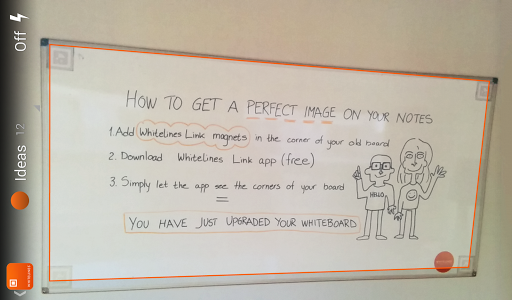 Off
Ideas 12
HOW TO GET A PERFECT IMAGE ON YOUR NOTES
1. Add Whitelines Link magnets in the corner of your old board
2. Download Whitelines Link app (free)
3. Simply let the app see the corners of your board
HELLO
YOU HAVE JUST UPGRADED YOUR WHITEBOARD